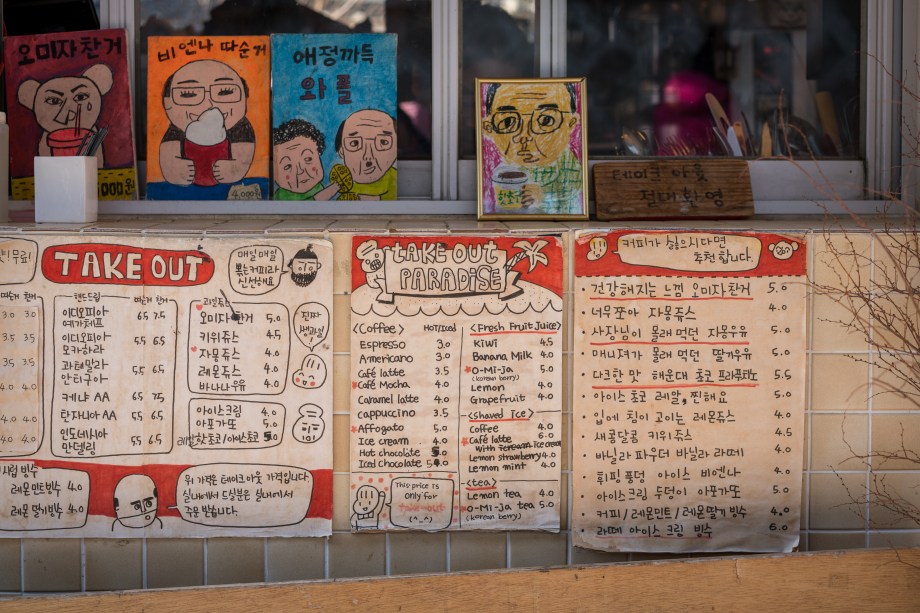 오미자찬거
000원
비엔나 따순거
4.000원
애정까득
와플
테이크 아웃
절대환영
TAKE OUT
매일매일
뽂는커피라
신선해요~
따순거 찬거
3.0 3.0
3.5 3.5
4.0 4.0
핸드드립
따순거 찬거
이디오피아
예가체프
6.5 7.5
이디오피아
모카하라
과테말라
안티구아
5.5 6.5
케냐 AA
6.5 7.5
탄자니아 AA
5.5 6.5
인도네시아
만델링
5.5 6.5
오미자찬거 5.0
키위쥬스 4.5
자몽쥬스 4.0
레몬쥬스 4.0
바나나우유 4.0
진짜
생과일
아이스크림 4.0
아포가또 5.0
레알핫초코/아이스쵸코
빙수
레몬민트빙수 4.0
레몬딸기빙수 4.0
위 가격은 테이크아웃 가격입니다.
실내에서 드실분은 실내에서
주문 받습니다.
TAKE OUT
PARADISE
<Coffee> HOT/Iced
Espresso 3.0
Americano 3.0
Café latte 3.5
Café Mocha 4.0
Caramel latte 4.0
cappuccino 3.5
Affogato 5.0
Ice cream 4.0
Hot chocolate
Iced chocolate
This price is
Only for
take-out
(^_^)
<Fresh Fruit Juice>
Kiwi 4.5
Banana Milk 4.0
O-Mi-ja 5.0
(korean berry)
Lemon 4.0
Grapefruit 4.0
<shaved ice>
Coffee 4.0
Café latte 6.0
With Icecream
Lemon strawberry 4.0
Lemon mint 4.0
<tea>
Lemon tea 4.0
O-Mi-ja tea 5.0
(korean berry)
커피가 싫으시다면
추천합니다.
· 건강해지는 느낌 오미자찬거 5.0
· 너무쪼아 자몽쥬스 4.0
· 사장님이 몰래 먹던 자몽우유 5.0
· 매니져가 몰래 먹던 딸기우유 5.0
· 다크한 맛 해운대 쵸코 프라푸치노 5.5
· 아이스 쵸코 레알, 찐해요 5.0
· 입에 침이 고이는 레몬쥬스 4.0
· 새콤달콤 키위쥬스 4.5
· 바닐라 파우더 바닐라 라떼 4.0
· 휘핑 퐁덩 아이스 비엔나 4.0
· 아이스크림 두덩이 아포가또 5.0
· 커피/레몬민트/레몬딸기 빙수 4.0
· 라떼 아이스크림 빙수 6.0